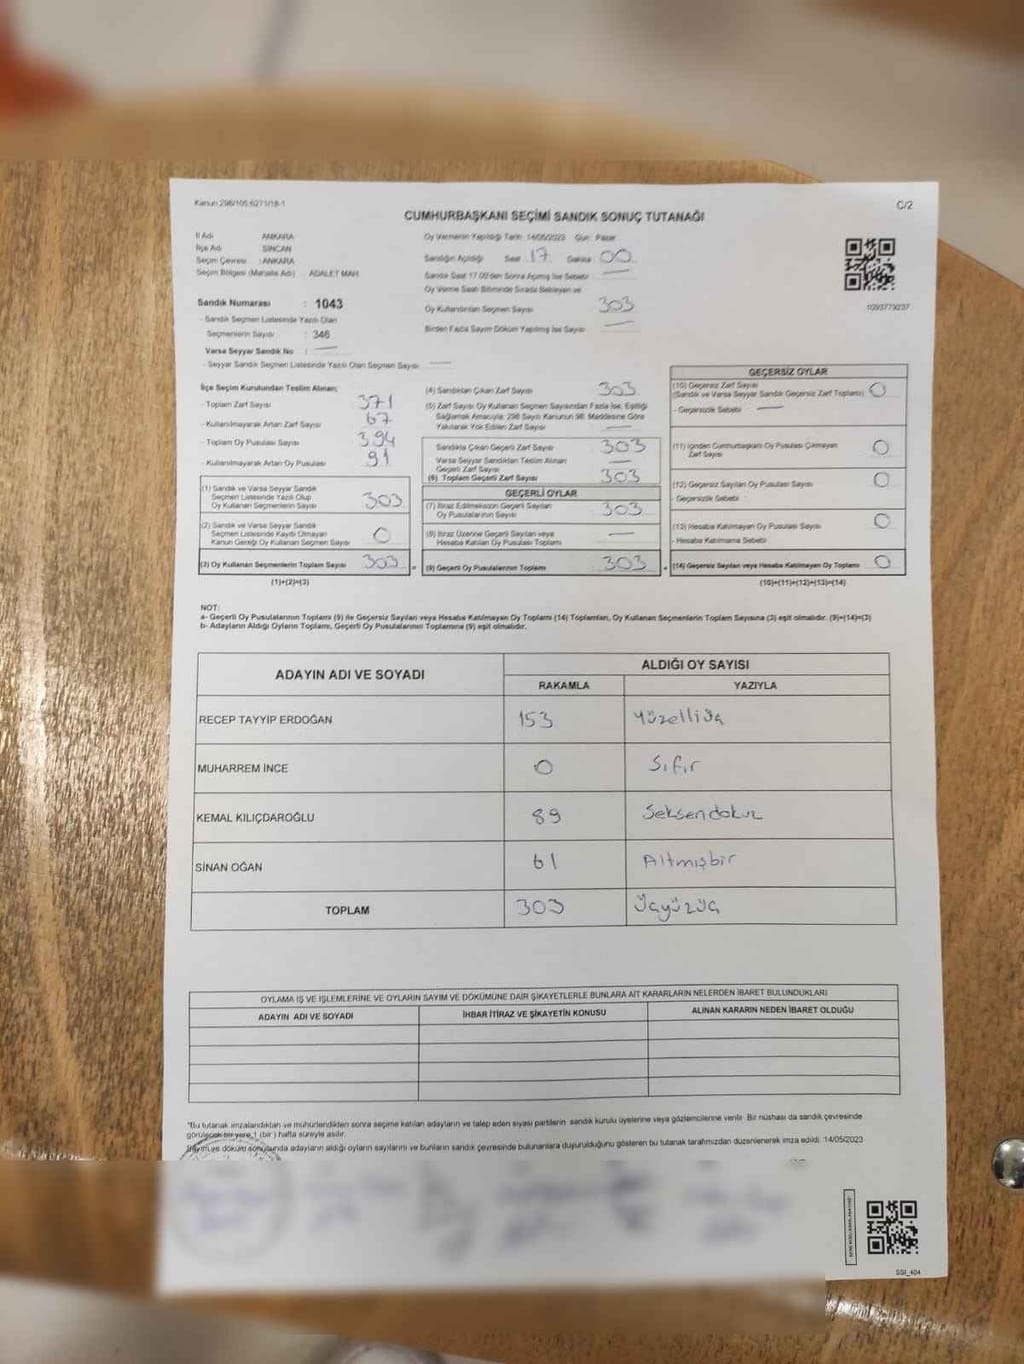 Kanun:298/105,6271/18-1
C/2
CUMHURBAŞKANI SEÇİMİ SANDIK SONUÇ TUTANAĞI
İl Adı : ANKARA
İlçe Adı : SİNCAN
Seçim Çevresi : ANKARA
Seçim Bölgesi (Mahalle Adı) : ADALET MAH.
Sandık Numarası : 1043
- Sandık Seçmen Listesinde Yazılı Olan
Seçmenlerin Sayısı : 346
Varsa Seyyar Sandık No : —
- Seyyar Sandık Seçmen Listesinde Yazılı Olan Seçmen Sayısı —
Oy Vermenin Yapıldığı Tarih : 14/05/2023 Gün : Pazar
Sandığın Açıldığı Saat 17 Dakika 00
Sandık Saat 17.00'den Sonra Açılmış İse Sebebi —
Oy Verme Saati Bitiminde Sırada Bekleyen ve
Oy Kullandırılan Seçmen Sayısı 303
Birden Fazla Sayım Döküm Yapılmış İse Sayısı —
1093779237
İlçe Seçim Kurulundan Teslim Alınan;
- Toplam Zarf Sayısı 371
- Kullanılmayarak Artan Zarf Sayısı 67
- Toplam Oy Pusulası Sayısı 394
- Kullanılmayarak Artan Oy Pusulası 91
(1) Sandık ve Varsa Seyyar Sandık
Seçmen Listesinde Yazılı Olup
Oy Kullanan Seçmenlerin Sayısı 303
(2) Sandık ve Varsa Seyyar Sandık
Seçmen Listesinde Kayıtlı Olmayan
Kanun Gereği Oy Kullanan Seçmen Sayısı 0
(3) Oy Kullanan Seçmenlerin Toplam Sayısı 303 =
(1)+(2)=(3)
(4) Sandıktan Çıkan Zarf Sayısı 303
(5) Zarf Sayısı Oy Kullanan Seçmen Sayısından Fazla İse, Eşitliği
Sağlamak Amacıyla; 298 Sayılı Kanunun 98. Maddesine Göre
Yakılarak Yok Edilen Zarf Sayısı —
Sandıkta Çıkan Geçerli Zarf Sayısı 303
Varsa Seyyar Sandıktan Teslim Alınan
Geçerli Zarf Sayısı —
(6) Toplam Geçerli Zarf Sayısı 303
GEÇERLİ OYLAR
(7) İtiraz Edilmeksizin Geçerli Sayılan
Oy Pusulalarının Sayısı 303
(8) İtiraz Üzerine Geçerli Sayılan veya
Hesaba Katılan Oy Pusulası Toplamı —
(9) Geçerli Oy Pusulalarının Toplamı 303 +
GEÇERSİZ OYLAR
(10) Geçersiz Zarf Sayısı
(Sandık ve Varsa Seyyar Sandık Geçersiz Zarf Toplamı) 0
- Geçersizlik Sebebi : —
(11) İçinden Cumhurbaşkanı Oy Pusulası Çıkmayan
Zarf Sayısı 0
(12) Geçersiz Sayılan Oy Pusulası Sayısı 0
- Geçersizlik Sebebi :
(13) Hesaba Katılmayan Oy Pusulası Sayısı 0
- Hesaba Katılmama Sebebi:
(14) Geçersiz Sayılan veya Hesaba Katılmayan Oy Toplamı 0
(10)+(11)+(12)+(13)=(14)
NOT:
a- Geçerli Oy Pusulalarının Toplamı (9) ile Geçersiz Sayılan veya Hesaba Katılmayan Oy Toplamı (14) Toplamları, Oy Kullanan Seçmenlerin Toplam Sayısına (3) eşit olmalıdır. (9)+(14)=(3)
b- Adayların Aldığı Oyların Toplamı, Geçerli Oy Pusulalarının Toplamına (9) eşit olmalıdır.
ADAYIN ADI VE SOYADI
ALDIĞI OY SAYISI
RAKAMLA YAZIYLA
RECEP TAYYİP ERDOĞAN 153 Yüzelliüç
MUHARREM İNCE 0 Sıfır
KEMAL KILIÇDAROĞLU 89 Seksendokuz
SİNAN OĞAN 61 Altmışbir
TOPLAM 303 Üçyüzüç
OYLAMA İŞ VE İŞLEMLERİNE VE OYLARIN SAYIM VE DÖKÜMÜNE DAİR ŞİKAYETLERLE BUNLARA AİT KARARLARIN NELERDEN İBARET BULUNDUKLARI
ADAYIN ADI VE SOYADI İHBAR İTİRAZ VE ŞİKAYETİN KONUSU ALINAN KARARIN NEDEN İBARET OLDUĞU
"Bu tutanak imzalandıktan ve mühürlendikten sonra seçime katılan adayların ve talep eden siyasi partilerin sandık kurulu üyelerine veya gözlemcilerine verilir. Bir nüshası da sandık çevresinde
görülecek bir yere 1 (bir) hafta süreyle asılır.
Sayım ve döküm sonucunda adayların aldığı oyların sayılarını ve bunların sandık çevresinde bulunanlara duyurulduğunu gösteren bu tutanak tarafımızdan düzenlenerek imza edildi. 14/05/2023
SSI_404